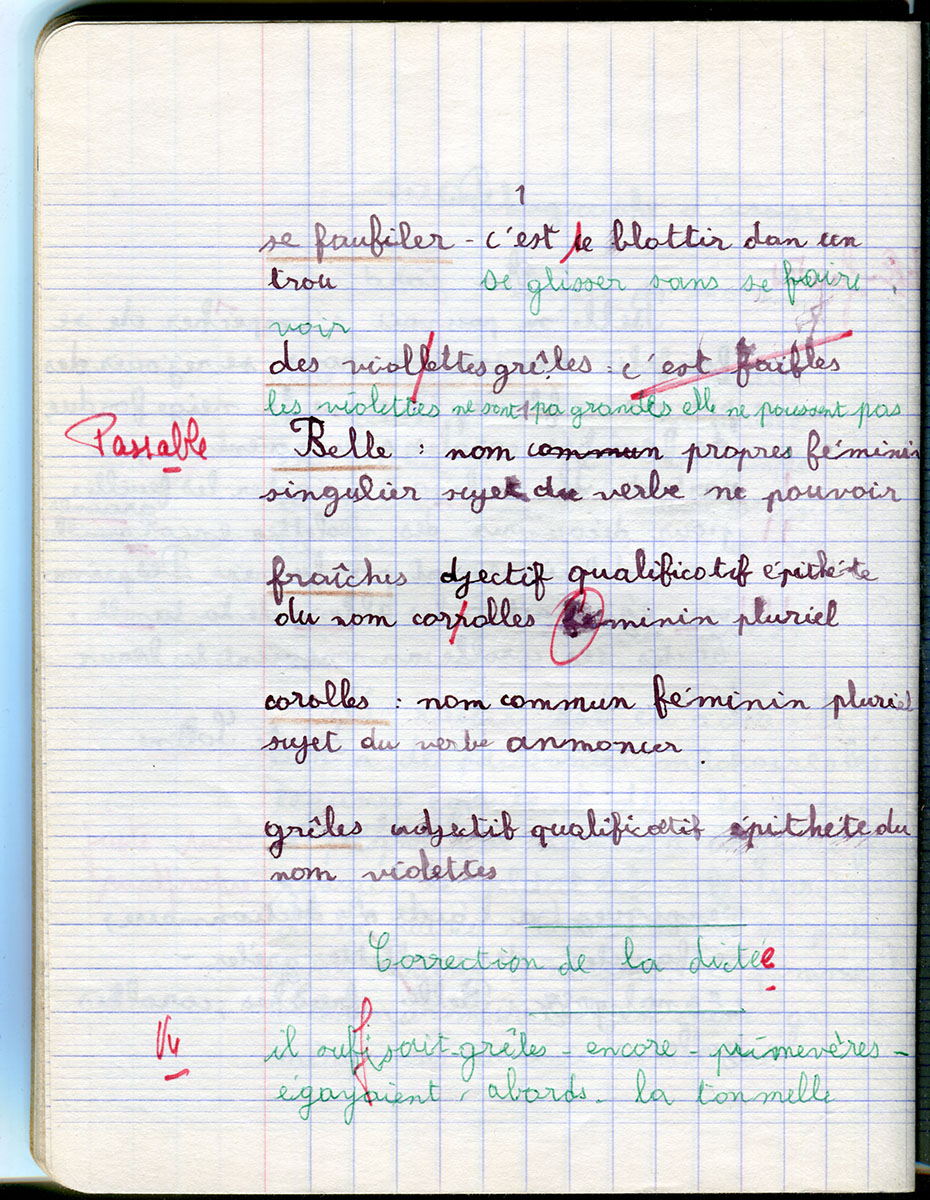 1
se faufiler - c'est se blottir dan un
trou se glisser sans se faire
voir
des viollettes grêles : c'est faibles
les violettes ne sont pa grandes elle ne poussent pas
Passable
Belle : nom commun propres féminin
singulier sujet du verbe ne pouvoir
fraîches djectif qualificatif épithéte
du nom corrolles féminin pluriel
corolles : nom commun féminin pluriel
sujet du verbe anmoncer.
grêles adjectif qualificatif épithéte du
nom violettes
Correction de la dictée
Vu
il suffisait - grêles - encore - primevères -
égayaient, abords - la tonmelle